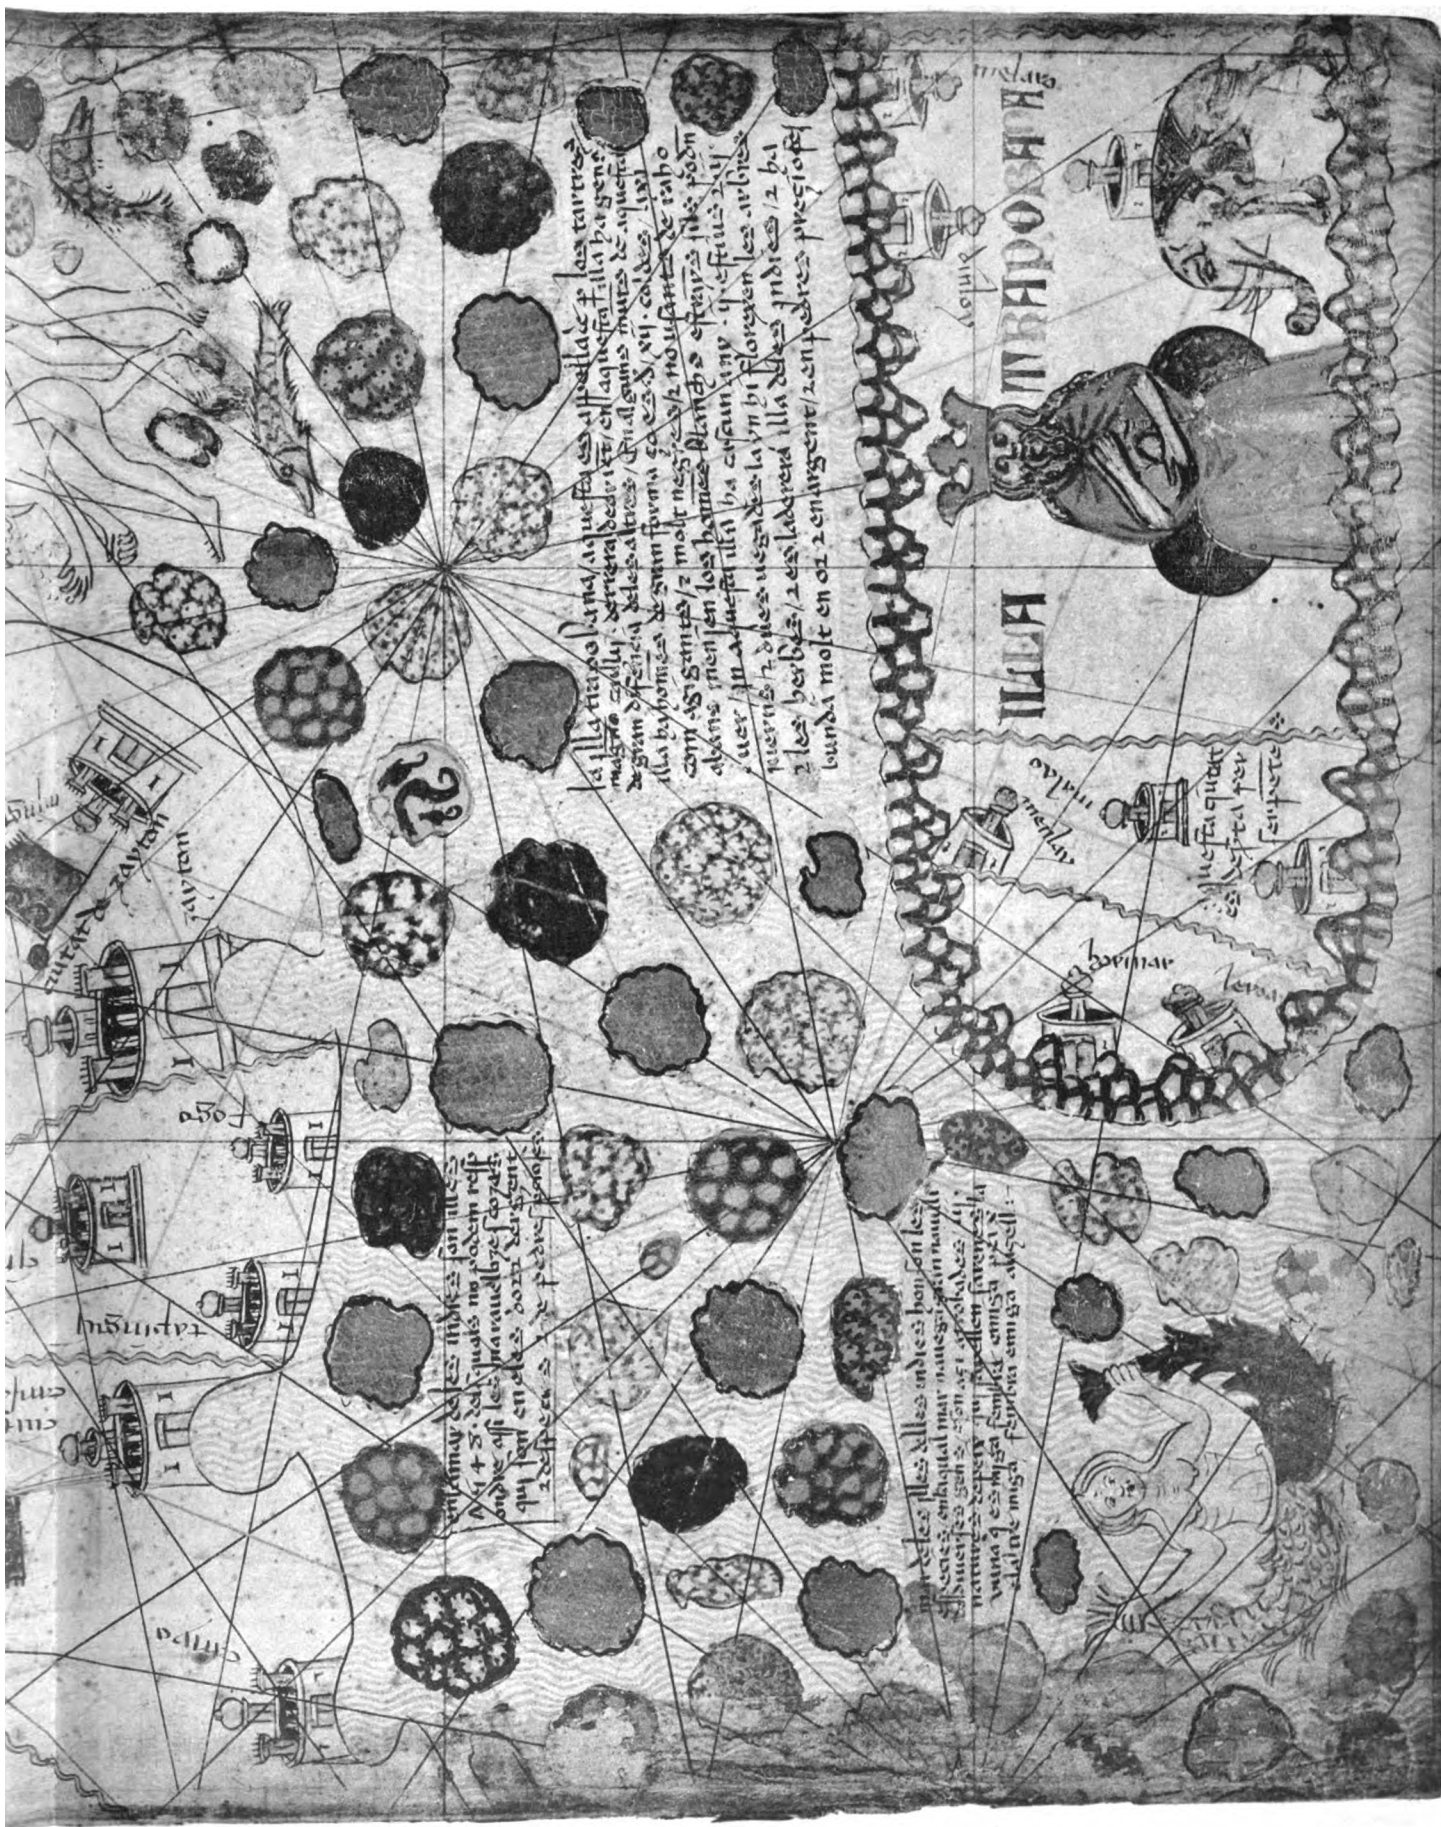 la illa trapobana / aquesta es appellada p los tartres
magno caulij derrera de orient / en aquesta illa ha gens
de gran difarencia deles altres / en alguns munts de aquesta
illa ha homes de gran forma ço es d xij coldes / axi
com agigants / 2 molt negres / 2 no usants de raho
abans menjen los homes blanchs estranys sils podn
auer / In aquesta illa ha casun any ij estius 2 ij
iuerns / 2 dues uegades layn hi florexen les arbres
2 les herbes / 2 es la derera illa deles indies / 2 ha
bunda molt en or 2 en argent / 2 en pedres precioses
en la mar deles indies son illes
deles quals no podem res
pondre assi les marauelloses cozes
qui son en eles dor 2 dergent
2 despecies 2 de pedres precioses
mar celes illes delles indies hon son les
species en la qual mar nauega gran nauili
d diuerses gens e son açi atrobades iij
natures de peix qui sapellen sarenes la
vna q es miga fembra e miga peix e
laltre miga fembra e miga augell:
ILLA TRAPOBANA
melaro
dinloy
malao
aquesta ciutat
es deserta per
serpets
hormar
leroa
ciutat d zayton
zayton
fogo
caynam